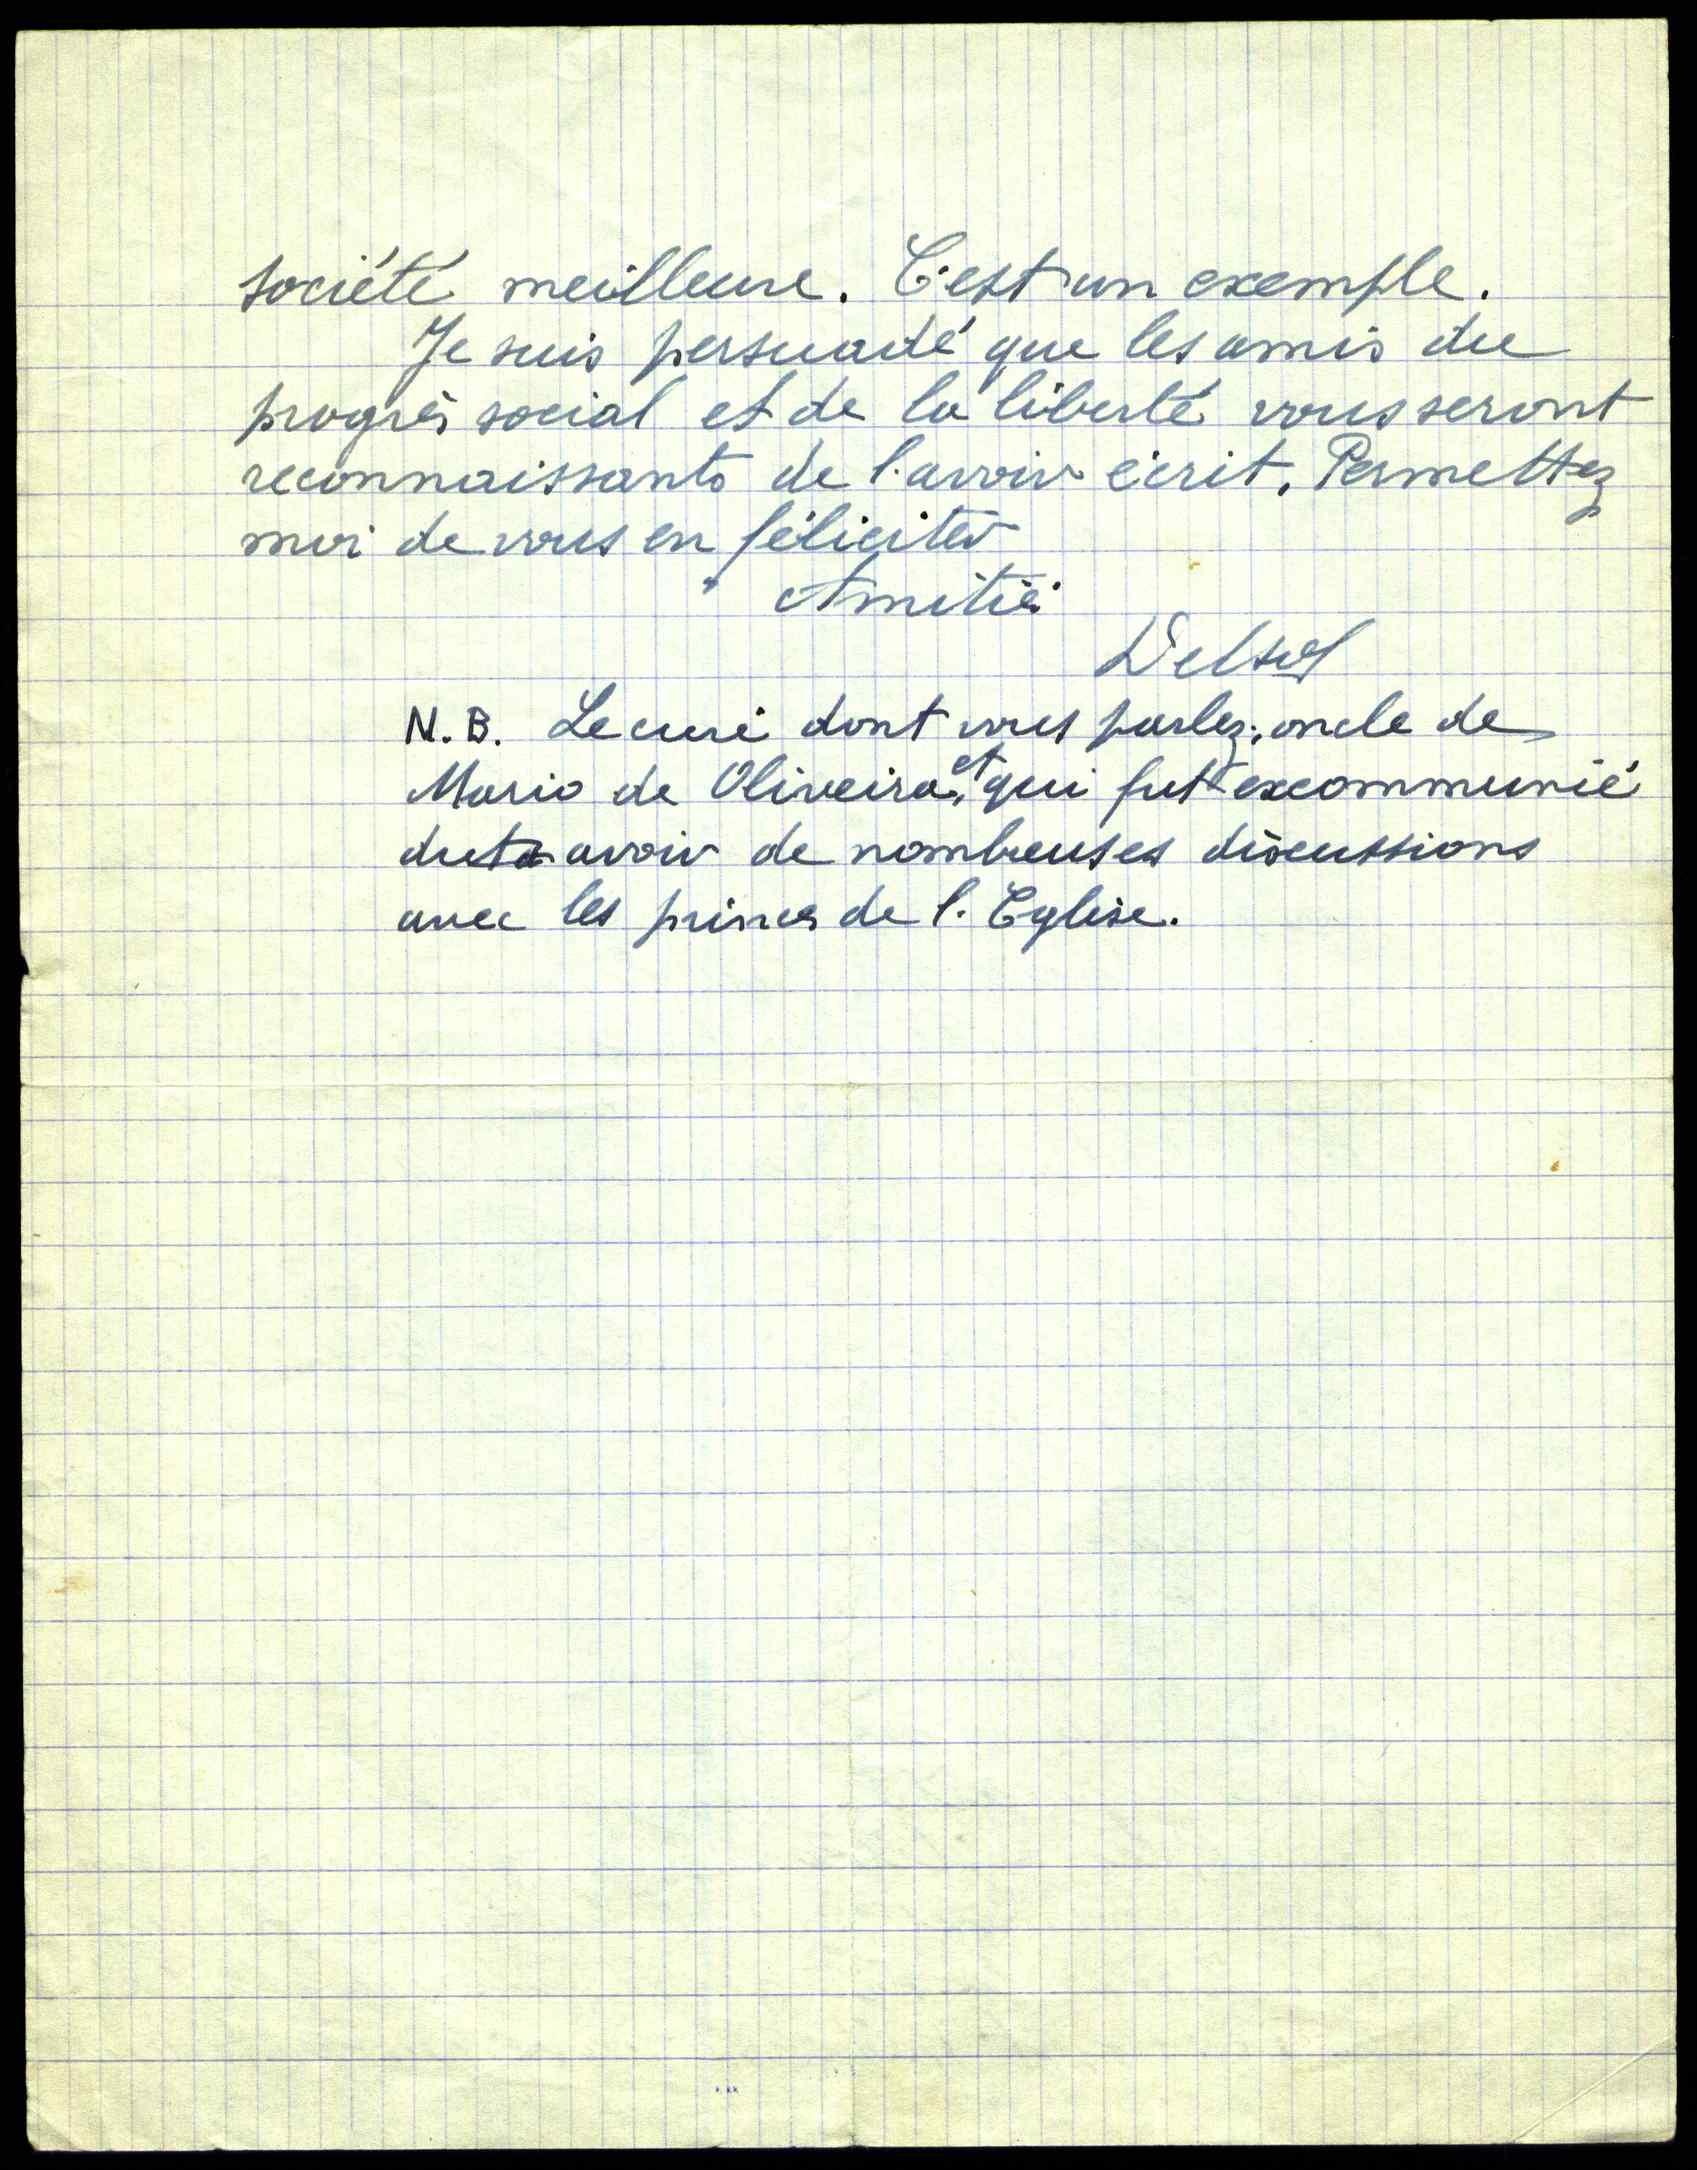 société meilleure. C'est un exemple.
Je suis persuadé que les amis du
progrès social et de la liberté vous seront
reconnaissants de l'avoir écrit. Permettez
moi de vous en féliciter
Amitié
Delsol
N.B. Le curé dont vous parlez, oncle de
Mario de Oliveira, et qui fut excommunié
dut avoir de nombreuses discussions
avec les princes de l'Eglise.